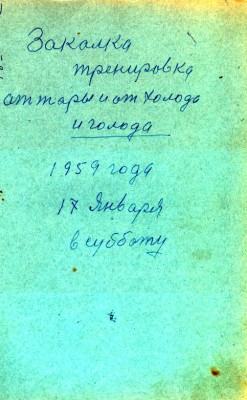 Закалка
тренировка
от тары и от холода
и голода
1959 года
17 Января
в субботу